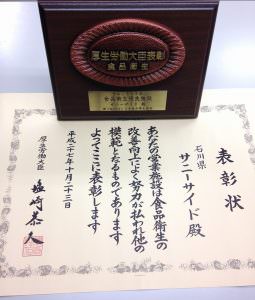 厚生労働大臣表彰
食品衛生
表彰状
石川県
サニーサイド殿
あなたの営業施設は食品衛生の
改善向上によく努力が払われ他の
模範となるものであります
よってここに表彰します
平成二十七年十月二十三日
厚生労働大臣
塩崎恭久